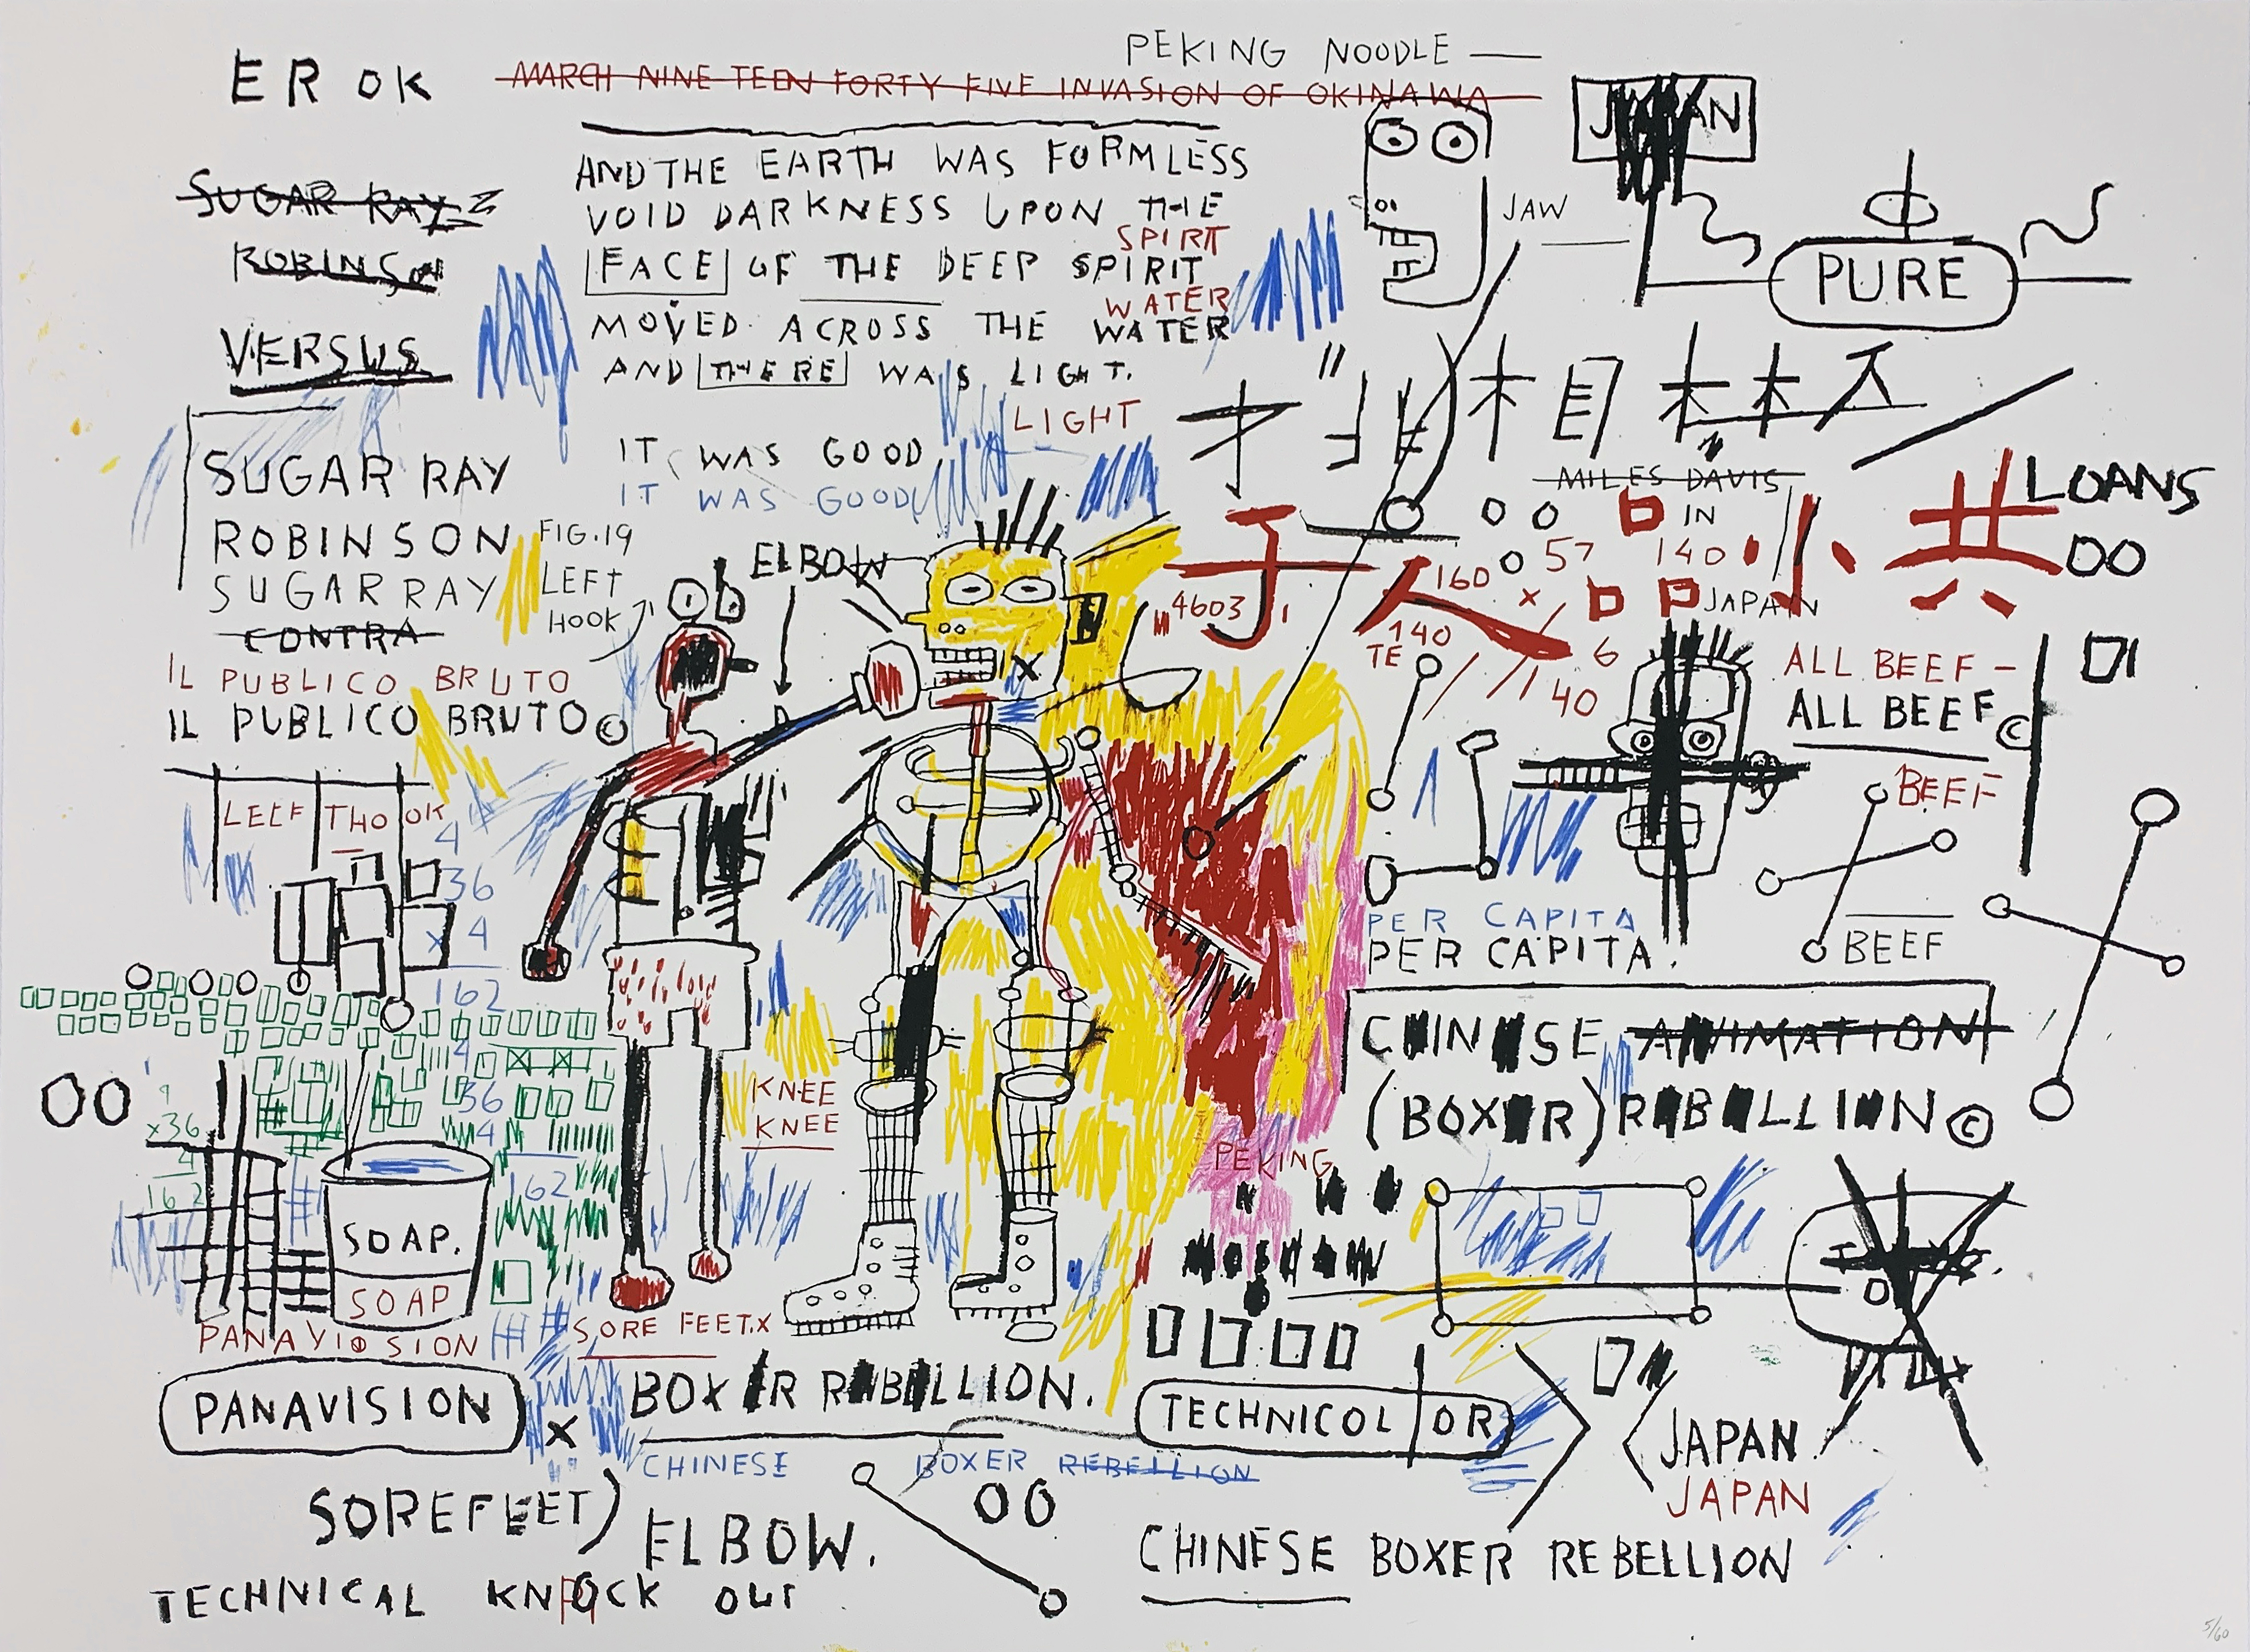 PEKING NOODLE —
EROK
MARCH NINE TEEN FORTY FIVE INVASION OF OKINAWA
JAPAN
AND THE EARTH WAS FORMLESS
VOID DARKNESS UPON THE
SPIRIT
FACE OF THE DEEP SPIRIT
WATER
MOVED ACROSS THE WATER
AND THERE WAS LIGHT.
LIGHT
IT WAS GOOD
IT WAS GOOD
SUGAR RAY
ROBINSON
VERSUS
SUGAR RAY
ROBINSON
SUGAR RAY
CONTRA
IL PUBLICO BRUTO
IL PUBLICO BRUTO ©
FIG.19
LEFT
HOOK
ELBOW
JAW
PURE
MILES DAVIS
LOANS
OO
子 人 小 共
IN
57
140
160
x
JAPAN
4603
140
6
TE
40
ALL BEEF –
ALL BEEF ©
BEEF
BEEF
PER CAPITA
PER CAPITA.
LEEF THO OK
4
36
x 4
162
4
36
4
162
OO
9
x36
4
162
SOAP.
SOAP
KNEE
KNEE
CHINESE ANIMATION
(BOXER) REBELLION ©
PEKING
SORE FEET.X
PANAVIOSION
PANAVISION
X
BOXER REBELLION.
TECHNICOLOR
CHINESE BOXER REBELLION
JAPAN
JAPAN
OO
SOREFEET)
ELBOW.
CHINESE BOXER REBELLION
TECHNICAL KNOCK OUT
5/60